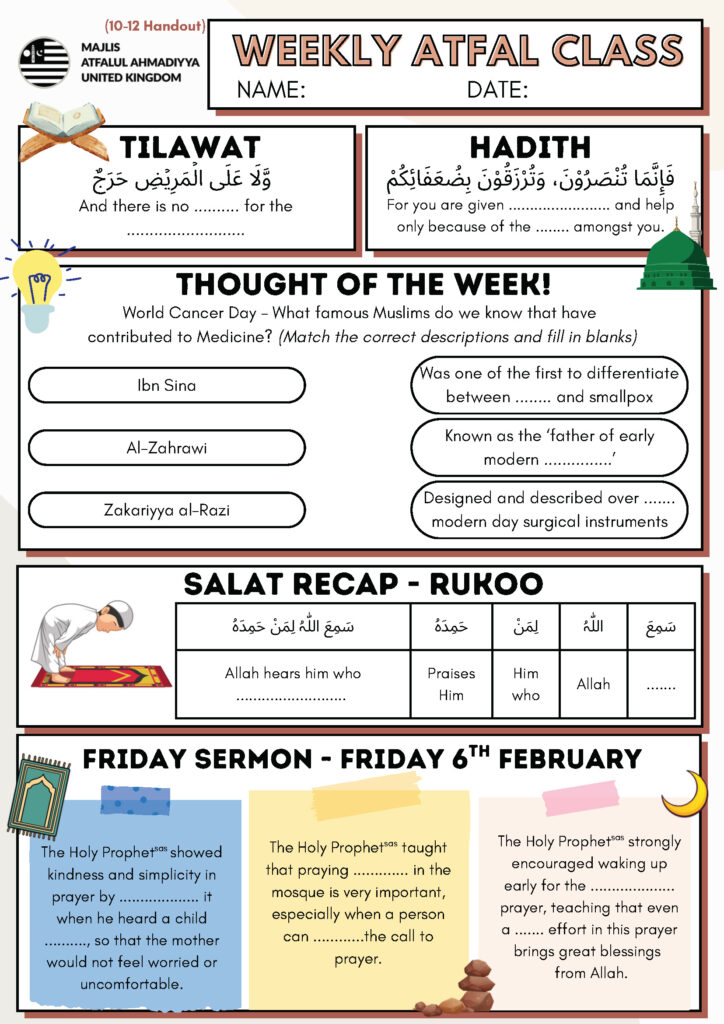 (10-12 Handout)
MAJLIS
ATFALUL AHMADIYYA
UNITED KINGDOM
WEEKLY ATFAL CLASS
NAME: DATE:
TILAWAT
وَّلَا عَلَى الْمَرِيْضِ حَرَجٌ
And there is no .......... for the
.........................
HADITH
فَإِنَّمَا تُنْصَرُوْنَ، وَتُرْزَقُوْنَ بِضُعَفَائِكُمْ
For you are given ....................... and help
only because of the ........ amongst you.
THOUGHT OF THE WEEK!
World Cancer Day – What famous Muslims do we know that have
contributed to Medicine? (Match the correct descriptions and fill in blanks)
Ibn Sina
Al-Zahrawi
Zakariyya al-Razi
Was one of the first to differentiate
between ........ and smallpox
Known as the ‘father of early
modern ...............’
Designed and described over .......
modern day surgical instruments
SALAT RECAP - RUKOO
سَمِعَ اللّٰهُ لِمَنْ حَمِدَهُ
حَمِدَهُ
لِمَنْ
اللّٰهُ
سَمِعَ
Allah hears him who
.........................
Praises
Him
Him
who
Allah
.......
FRIDAY SERMON - FRIDAY 6TH FEBRUARY
The Holy Prophetsas showed
kindness and simplicity in
prayer by ................... it
when he heard a child
.........., so that the mother
would not feel worried or
uncomfortable.
The Holy Prophetsas taught
that praying ............. in the
mosque is very important,
especially when a person
can ............the call to
prayer.
The Holy Prophetsas strongly
encouraged waking up
early for the ...................
prayer, teaching that even
a ....... effort in this prayer
brings great blessings
from Allah.